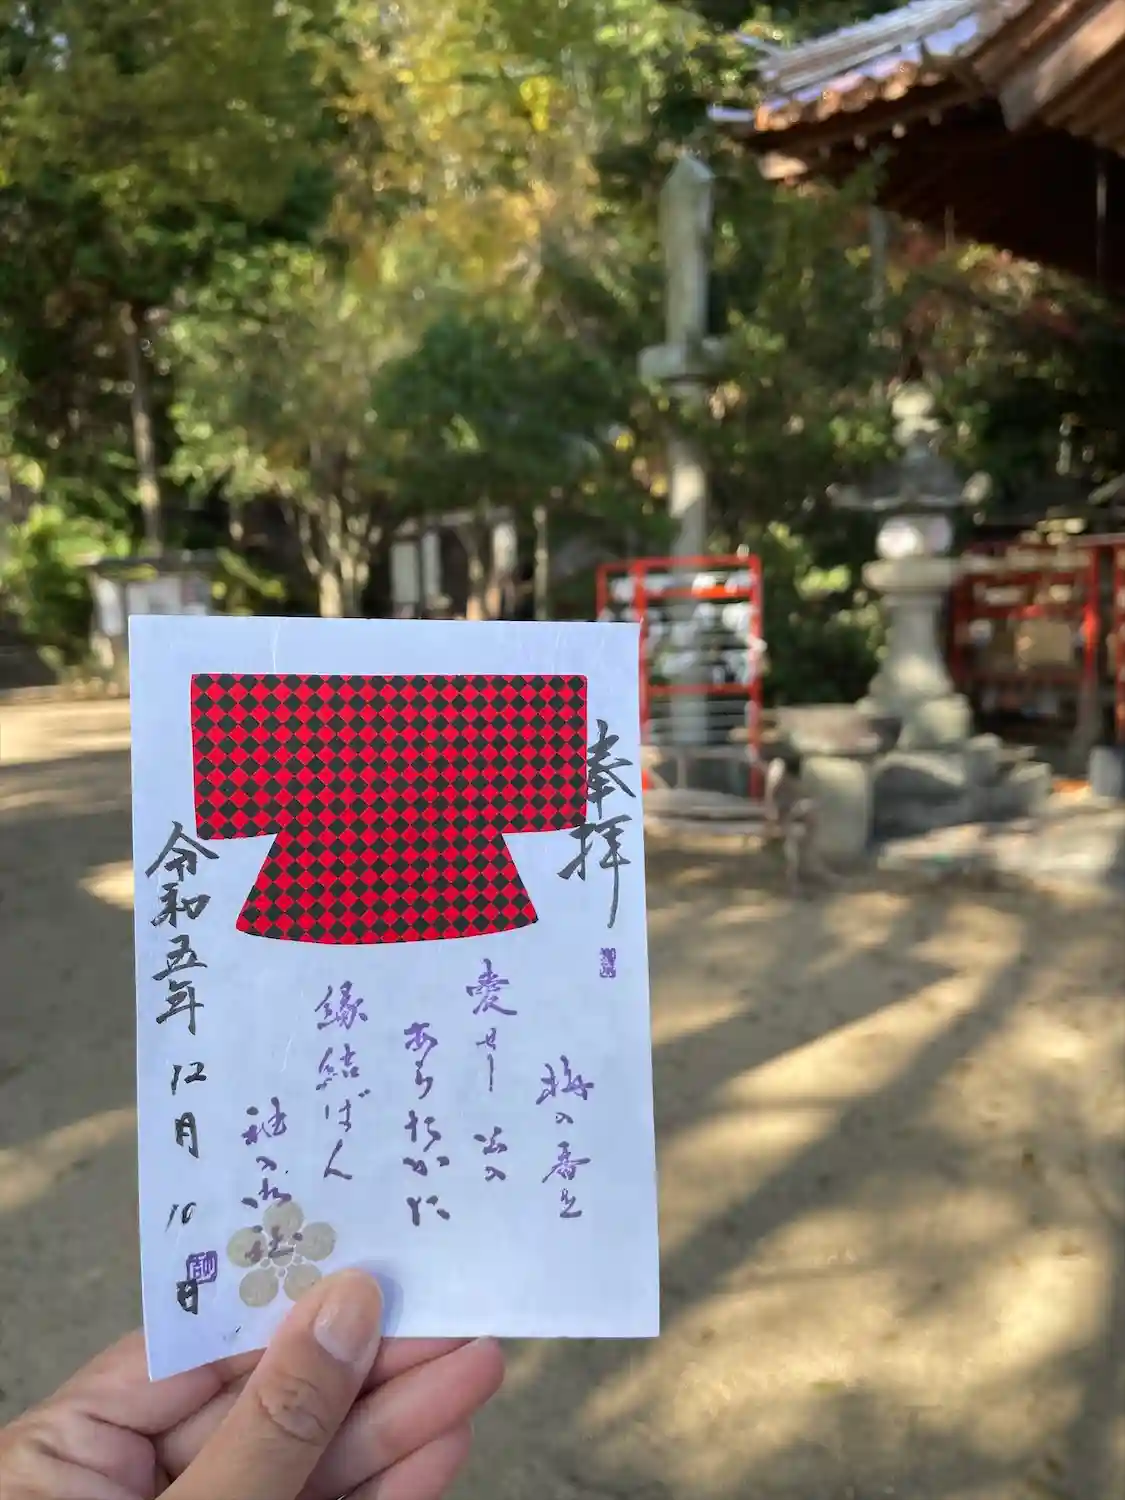 奉拝
梅の香を
愛せし公の
あらたかに
縁結ばん
令和五年12月10日